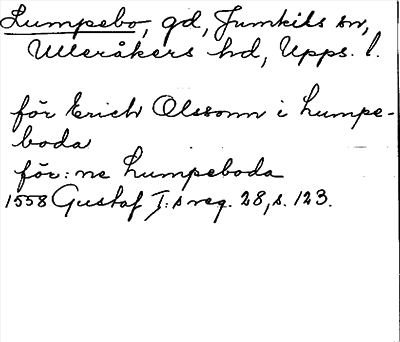 Lumpebo, gd, Jumkils sn,
Ulleråkers hd, Upps. l.
för Erich Olssonn i Lumpe-
boda
för: ne Lumpeboda
1558 Gustaf I:s reg. 28, s. 123.